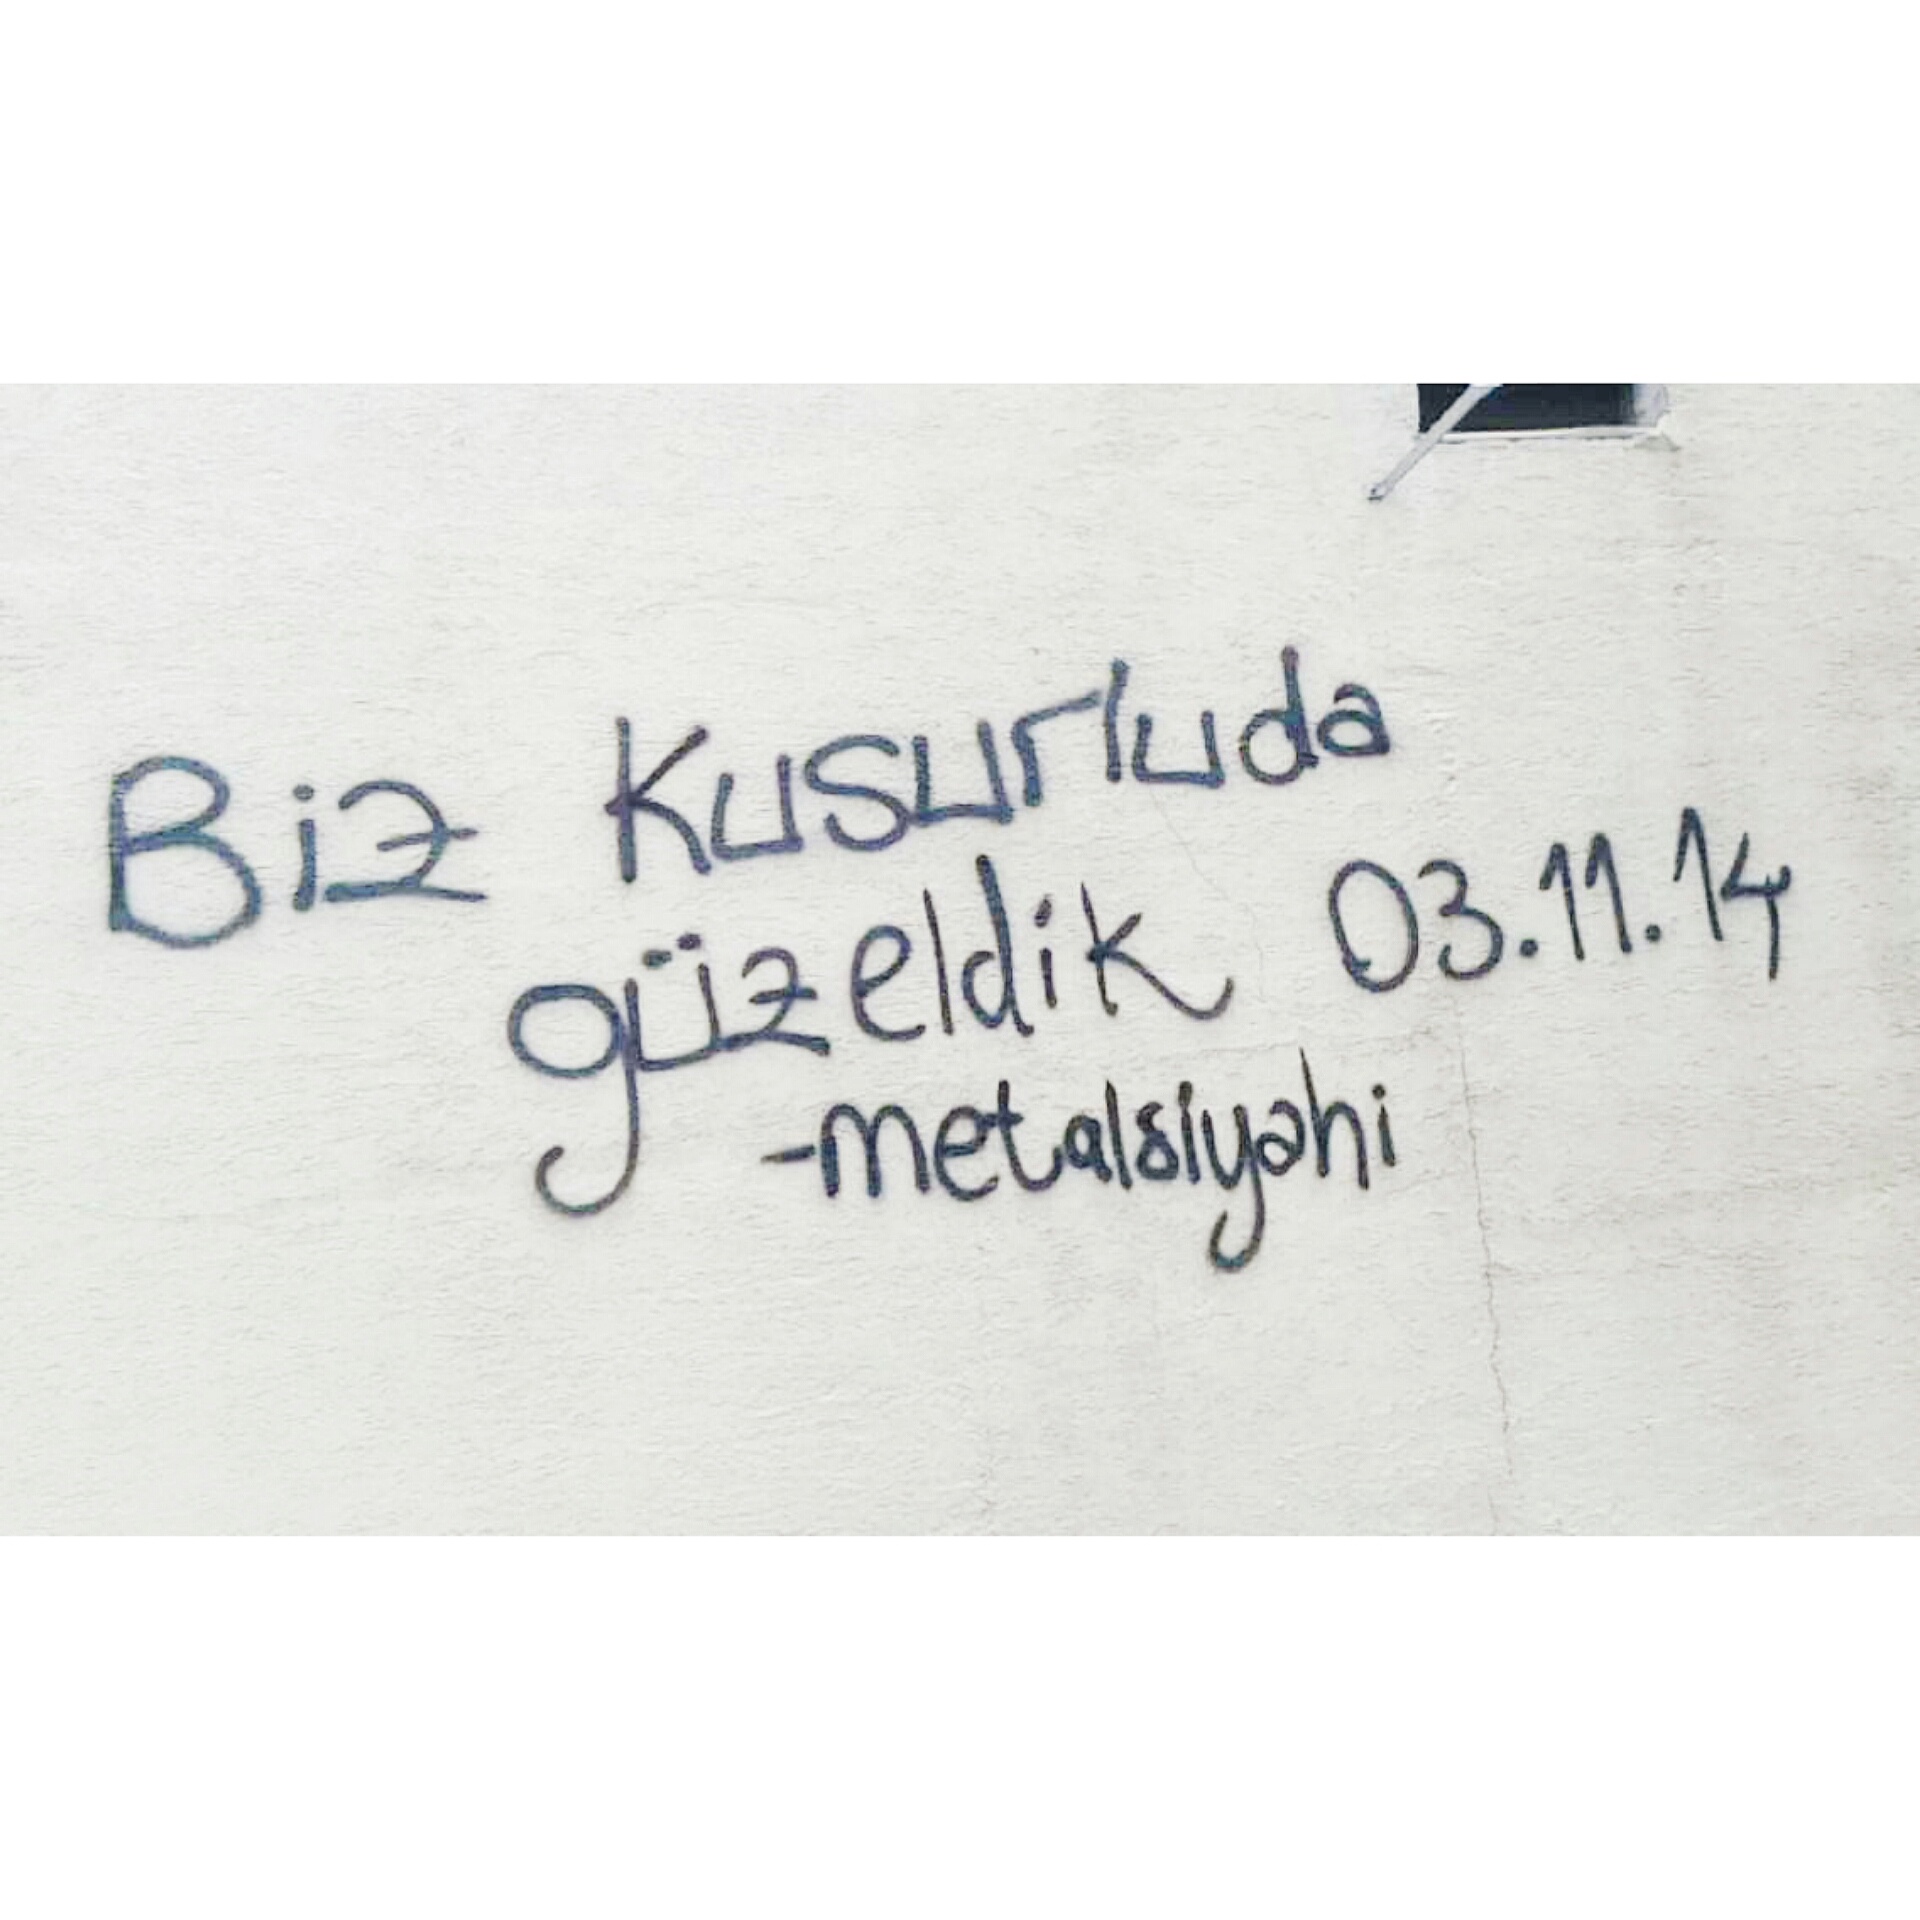 Biz Kusurluda
güzeldik 03.11.14
-metalsiyahi